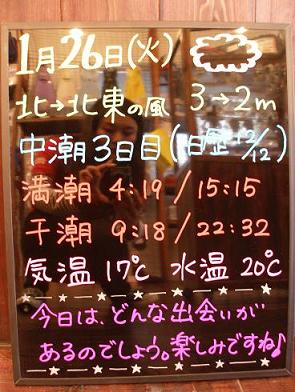 1月26日(火)
北→北東の風 3→2m
中潮3日目(旧歴12/12)
満潮 4:19/15:15
干潮 9:18/22:32
気温 17℃ 水温 20℃
今日は、どんな出会いが
あるのでしょう。楽しみですね♪